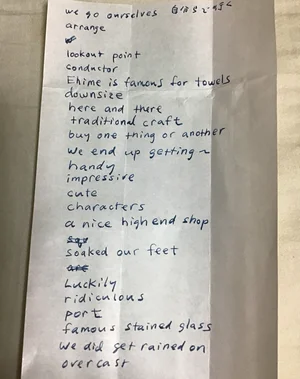 we go ourselves 自分らで行く
arrange
lookout point
conductor
Ehime is famous for towels
downsize
here and there
traditional craft
buy one thing or another
We end up getting~
handy
impressive
cute
characters
a nice high end shop
soaked our feet
Luckily
ridiculous
port
famous stained glass
We did get rained on
overcast